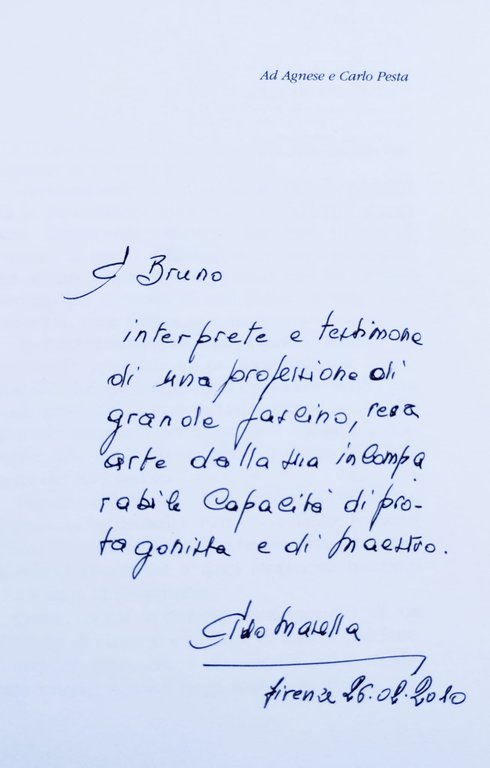 Ad Agnese e Carlo Pesta
A Bruno
interprete e testimone
di una professione di
grande fascino, resa
arte dalla sua incompa
rabile capacità di pro-
tagonista e di maestro.
Firenze 26.02.2010